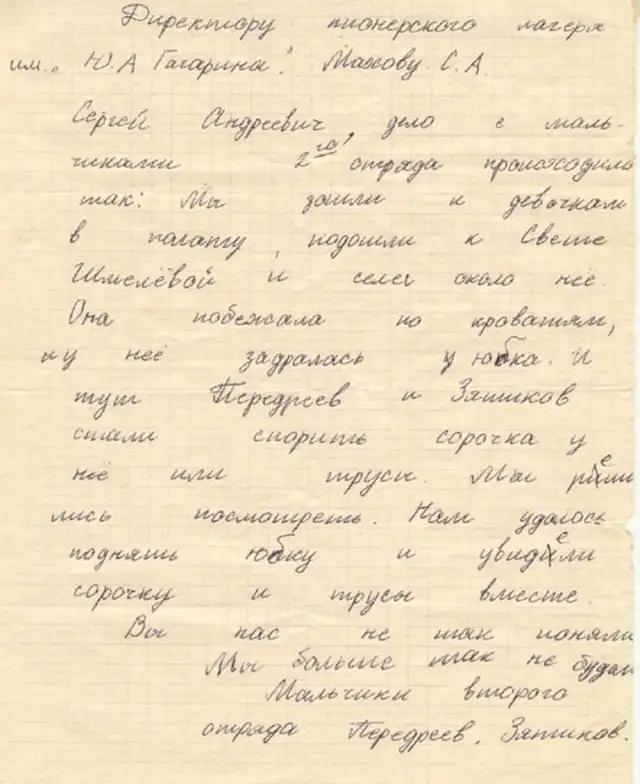 Директору пионерского лагеря
им. „Ю.А Гагарина". Махову. С.А.
Сергей Андреевич, дело с маль-
чиками 2го отряда происходило
так: Мы зашли к девочкам
в палату, подошли к Свете
Шмелёвой и сели около неё.
Она побежала по кроватям,
и у неё задралась юбка. И
тут Передреев и Зятиков
стали спорить сорочка у
неё или трусы. Мы реши
лись посмотреть. Нам удалось
поднять юбку и увидели
сорочку и трусы вместе.
Вы нас не так поняли
Мы больше так не будем
Мальчики второго
отряда Передреев. Зятиков.